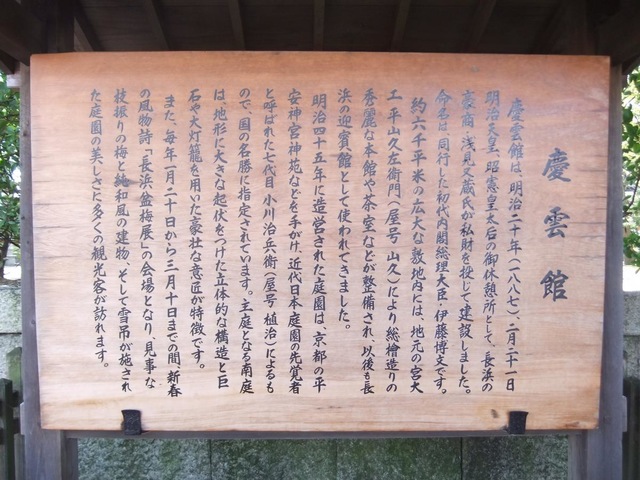 慶雲館
慶雲館は、明治二十年(一八八七)、二月二十一日
明治天皇、昭憲皇太后の御休憩所として、長浜の
豪商・浅見又蔵氏が私財を投じて建設しました。
命名は、同行した初代内閣総理大臣・伊藤博文です。
約六千平米の広大な敷地内には、地元の宮大
工 平山久左衛門(屋号 山久)により総檜造りの
秀麗な本館や茶室などが整備され、以後も長
浜の迎賓館として使われてきました。
明治四十五年に造営された庭園は、京都の平
安神宮神苑などを手がけ、近代日本庭園の先覚者
と呼ばれた七代目 小川治兵衛(屋号 植治)によるも
ので、国の名勝に指定されています。主庭となる南庭
は、地形に大きな起伏をつけた立体的な構造と巨
石や大灯籠を用いた豪壮な意匠が特徴です。
また、毎年一月二十日から三月十日までの間、新春
の風物詩「長浜盆梅展」の会場となり、見事な
枝振りの梅と純和風の建物、そして雪吊が施され
た庭園の美しさに多くの観光客が訪れます。